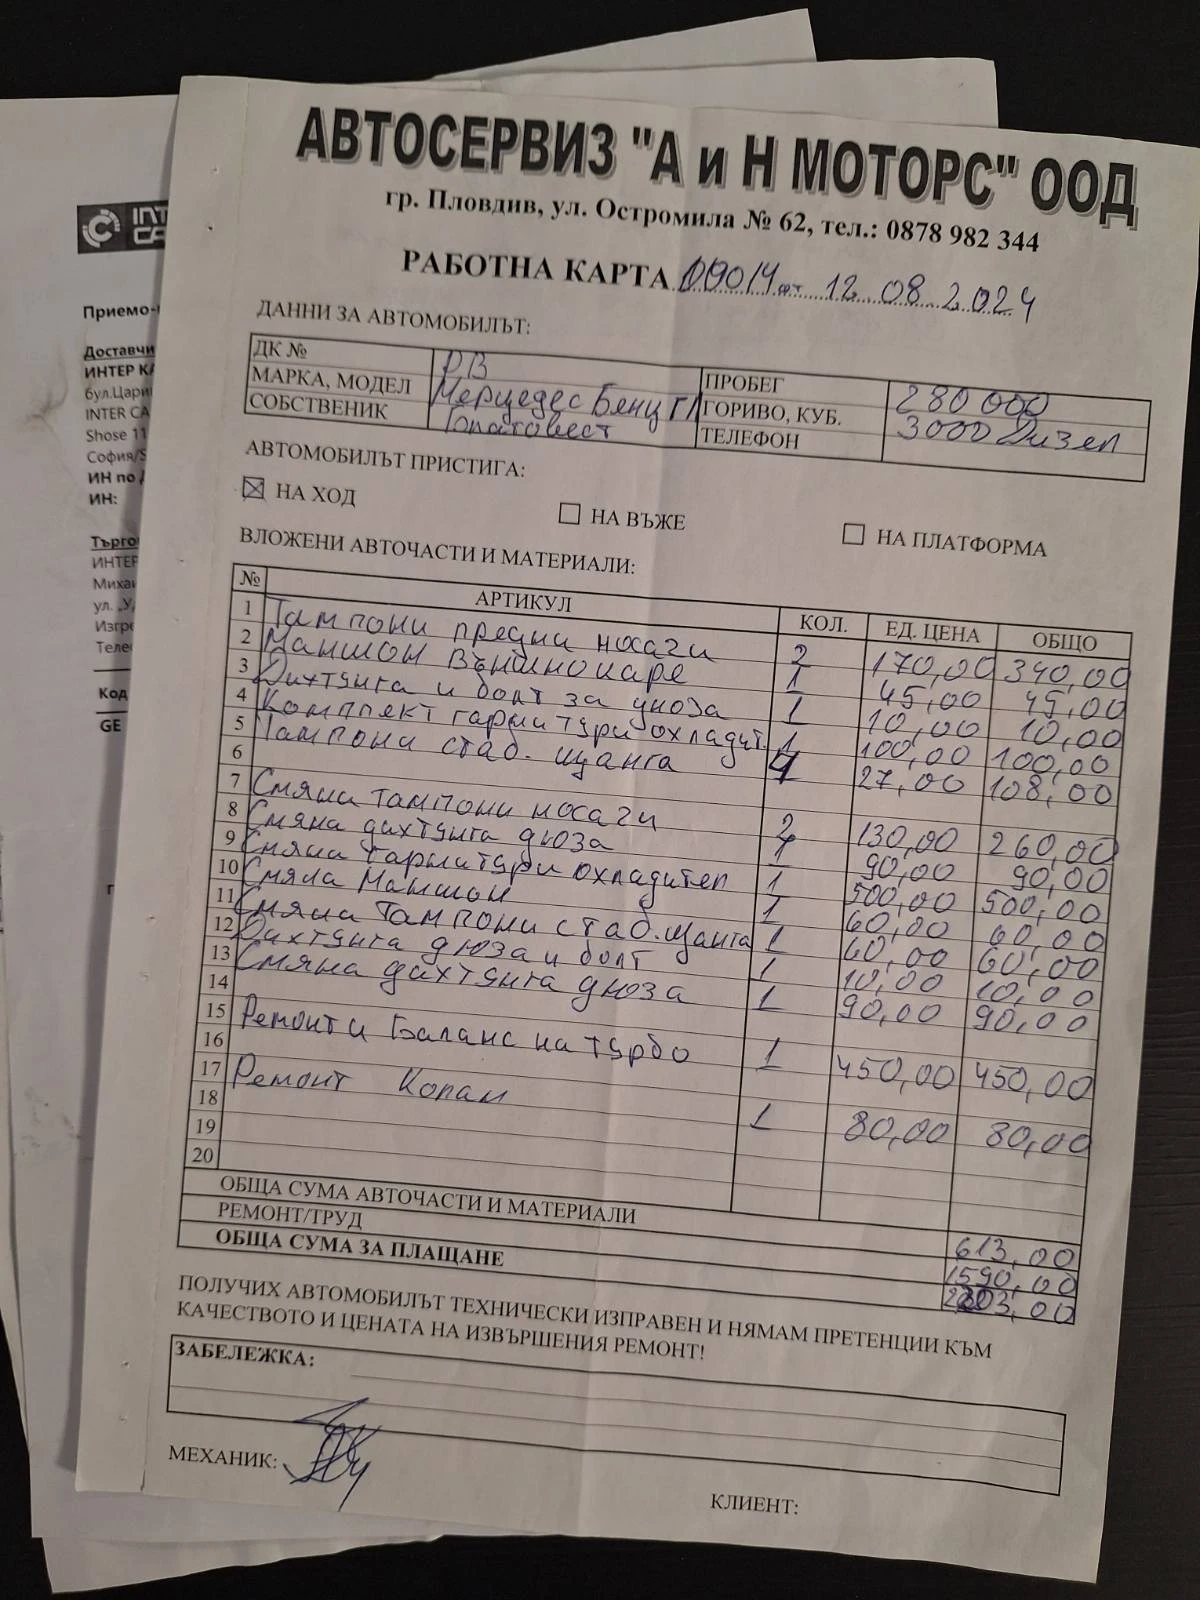 АВТОСЕРВИЗ "А и Н МОТОРС" ООД
гр. Пловдив, ул. Остромила № 62, тел.: 0878 982 344
РАБОТНА КАРТА от 12.08.2024
ДАННИ ЗА АВТОМОБИЛЪТ:
ДК № РВ ПРОБЕГ 280 000
МАРКА, МОДЕЛ Мерцедес Бенц ГЛ ГОРИВО, КУБ. 3000 Дизел
СОБСТВЕНИК ТЕЛЕФОН
АВТОМОБИЛЪТ ПРИСТИГА:
НА ХОД НА ВЪЖЕ НА ПЛАТФОРМА
ВЛОЖЕНИ АВТОЧАСТИ И МАТЕРИАЛИ:
№ АРТИКУЛ КОЛ. ЕД. ЦЕНА ОБЩО
1 Тампони предни носачи 2 170,00 340,00
2 Маншон външно каре 1 45,00 45,00
3 Дихтунга и болт за дюза 1 10,00 10,00
4 Комплект гармитури охладит. 1 100,00 100,00
5 Тампони стаб. щанга 4 27,00 108,00
6
7 Смяна тампони носачи 2 130,00 260,00
8 Смяна дихтунга дюза 1 90,00 90,00
9 Смяна гармитури охладител 1 500,00 500,00
10 Смяна Маншон 1 60,00 60,00
11 Смяна Тампони стаб. щанга 1 60,00 60,00
12 Дихтунга дюза и болт 1 10,00 10,00
13 Смяна дихтунга дюза 1 90,00 90,00
14
15 Ремонт и Баланс на турбо 1 450,00 450,00
16
17 Ремонт Колан 1 80,00 80,00
18
19
20
ОБЩА СУМА АВТОЧАСТИ И МАТЕРИАЛИ 613,00
РЕМОНТ/ТРУД 1590,00
ОБЩА СУМА ЗА ПЛАЩАНЕ 2203,00
ПОЛУЧИХ АВТОМОБИЛЪТ ТЕХНИЧЕСКИ ИЗПРАВЕН И НЯМАМ ПРЕТЕНЦИИ КЪМ
КАЧЕСТВОТО И ЦЕНАТА НА ИЗВЪРШЕНИЯ РЕМОНТ!
ЗАБЕЛЕЖКА:
МЕХАНИК:
КЛИЕНТ:
INT
CA
Приемо-
Доставчи
ИНТЕР КА
бул.Цари
INTER CA
Shose 11
София/S
ИН по
ИН:
Търго
ИНТЕР
Михаи
ул. „У
Изгре
Теле
Код
GE